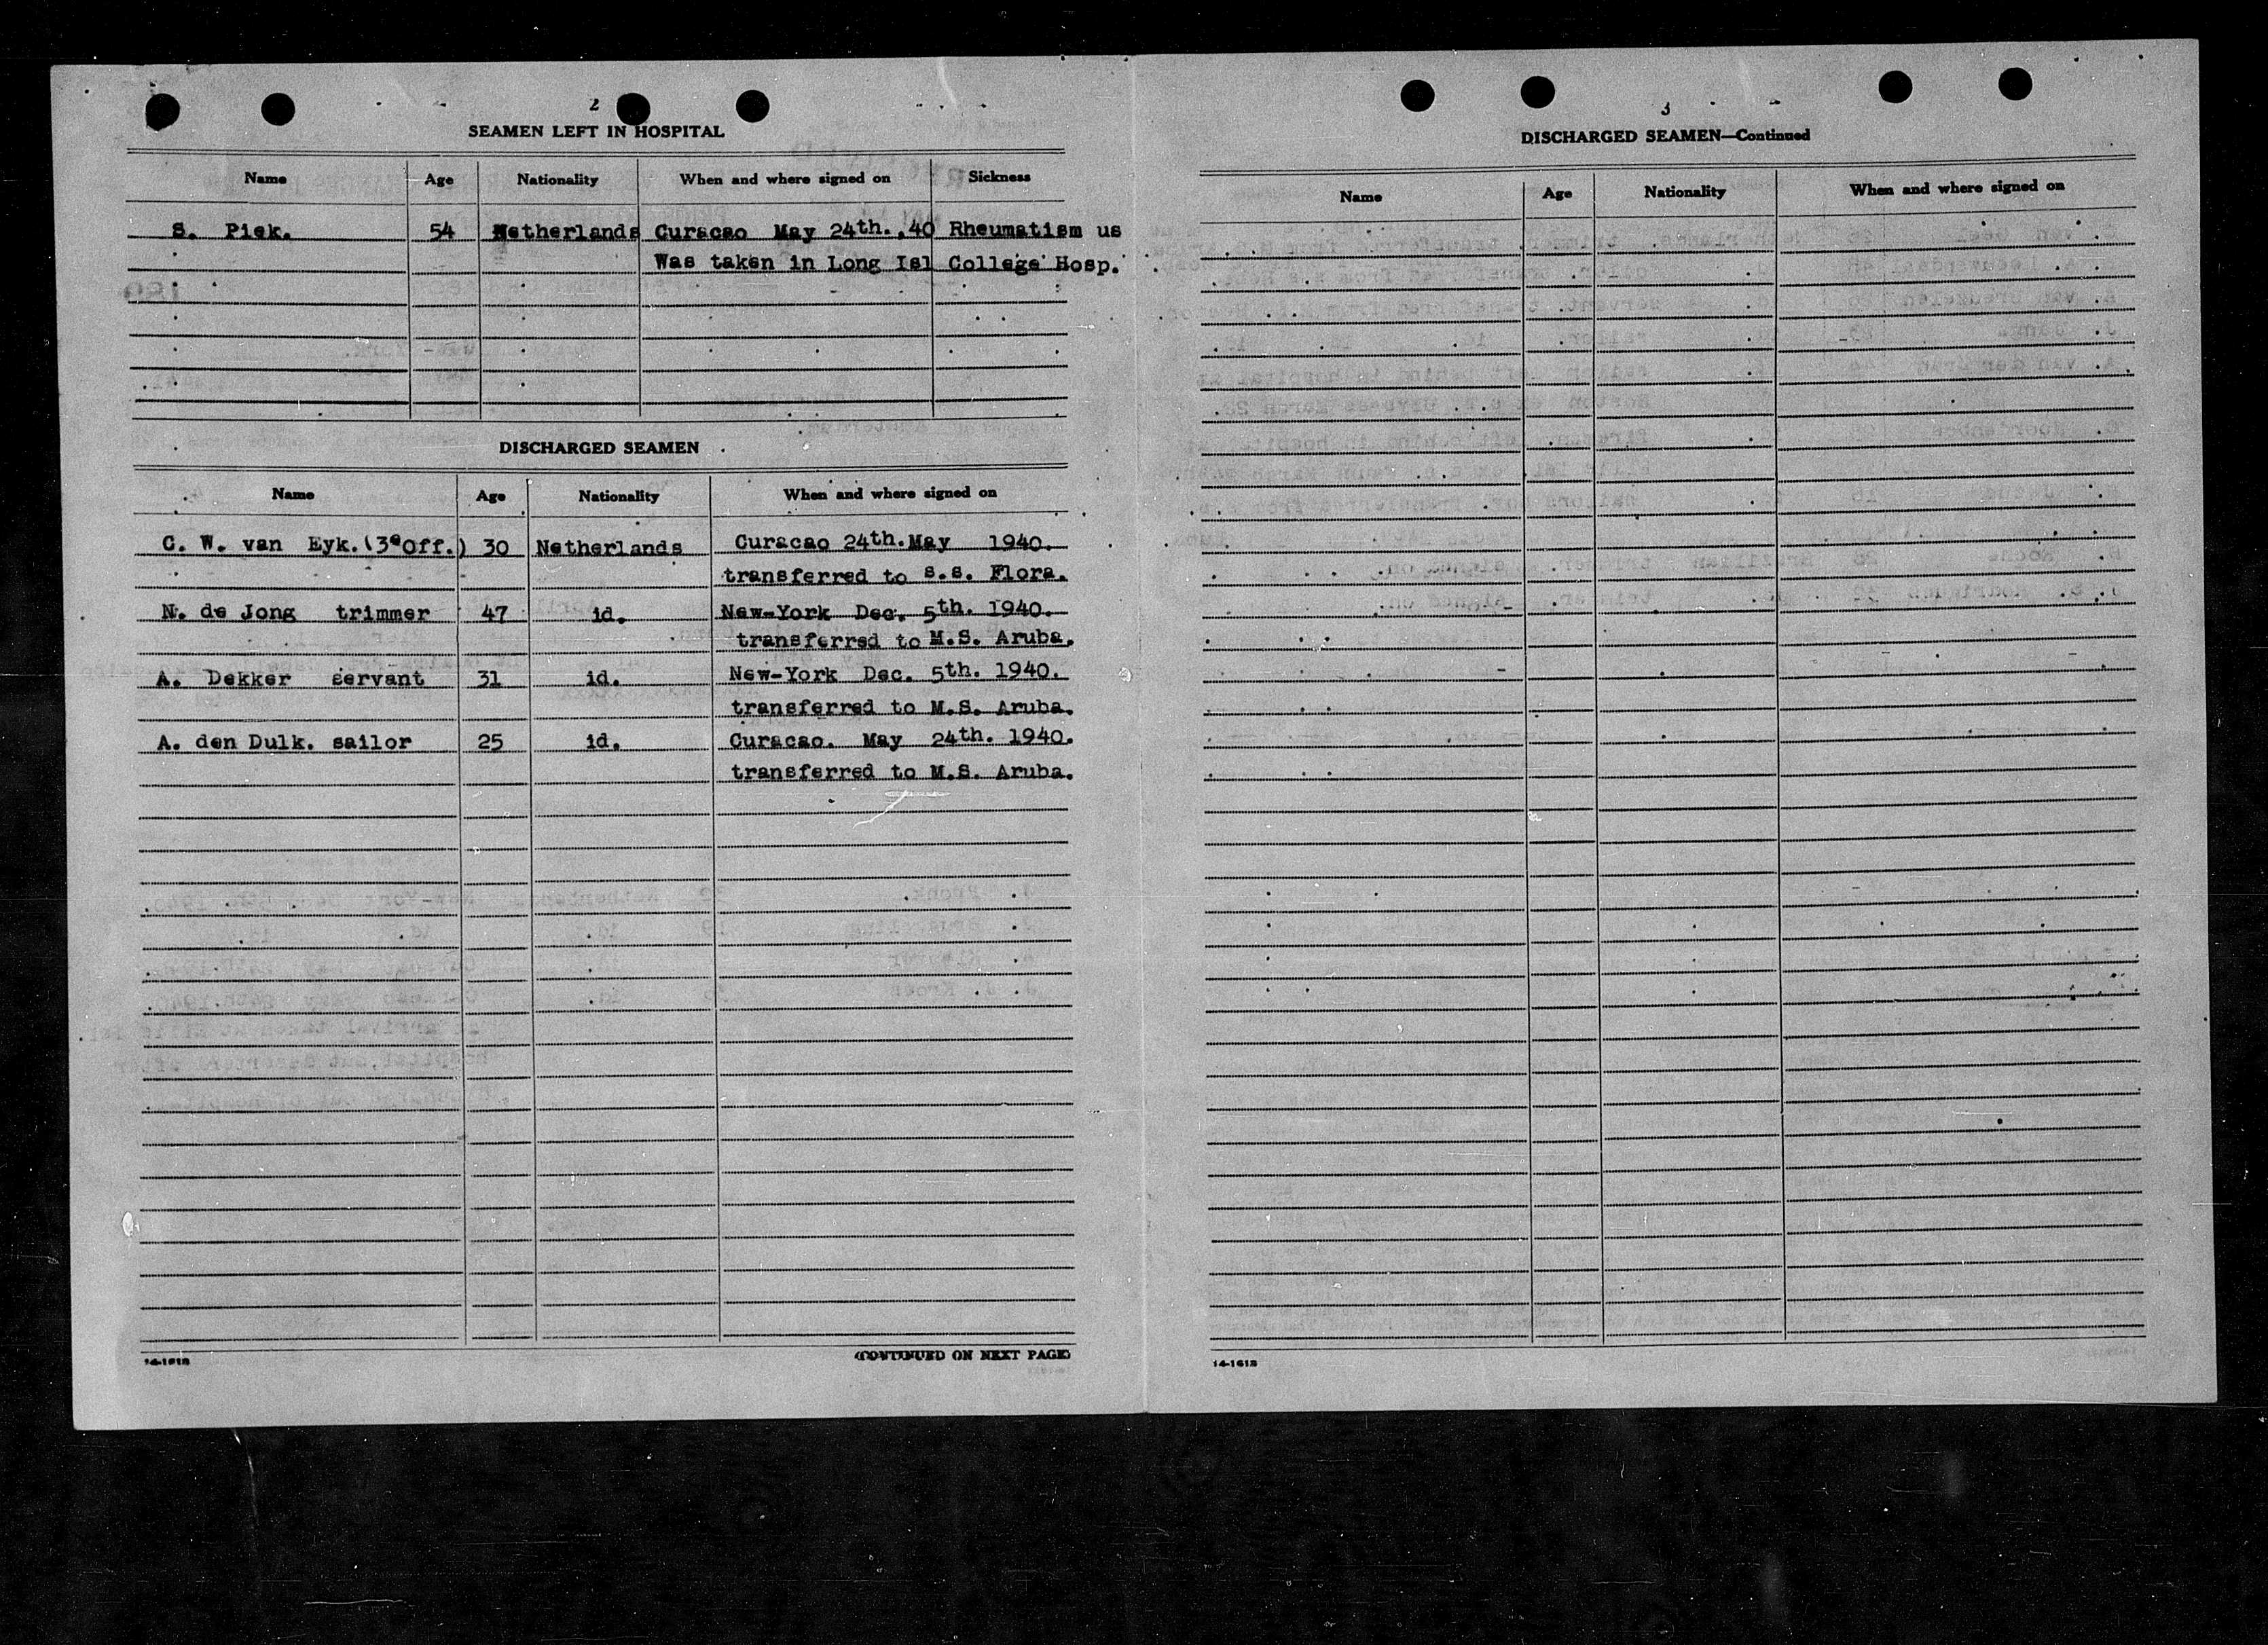 2
SEAMEN LEFT IN HOSPITAL
Name Age Nationality When and where signed on Sickness
S. Piek. 54 Netherlands Curacao May 24th.,40 Rheumatism us
Was taken in Long Isl College Hosp.
DISCHARGED SEAMEN
Name Age Nationality When and where signed on
C. W. van Eyk.(3e Off.) 30 Netherlands Curacao 24th.May 1940.
transferred to s.s. Flora.
N. de Jong trimmer 47 id. New-York Dec. 5th. 1940.
transferred to M.S. Aruba.
A. Dekker servant 31 id. New-York Dec. 5th. 1940.
transferred to M.S. Aruba.
A. den Dulk. sailor 25 id. Curacao. May 24th. 1940.
transferred to M.S. Aruba.
14-1612 (CONTINUED ON NEXT PAGE)
3
DISCHARGED SEAMEN—Continued
Name Age Nationality When and where signed on
14-1612